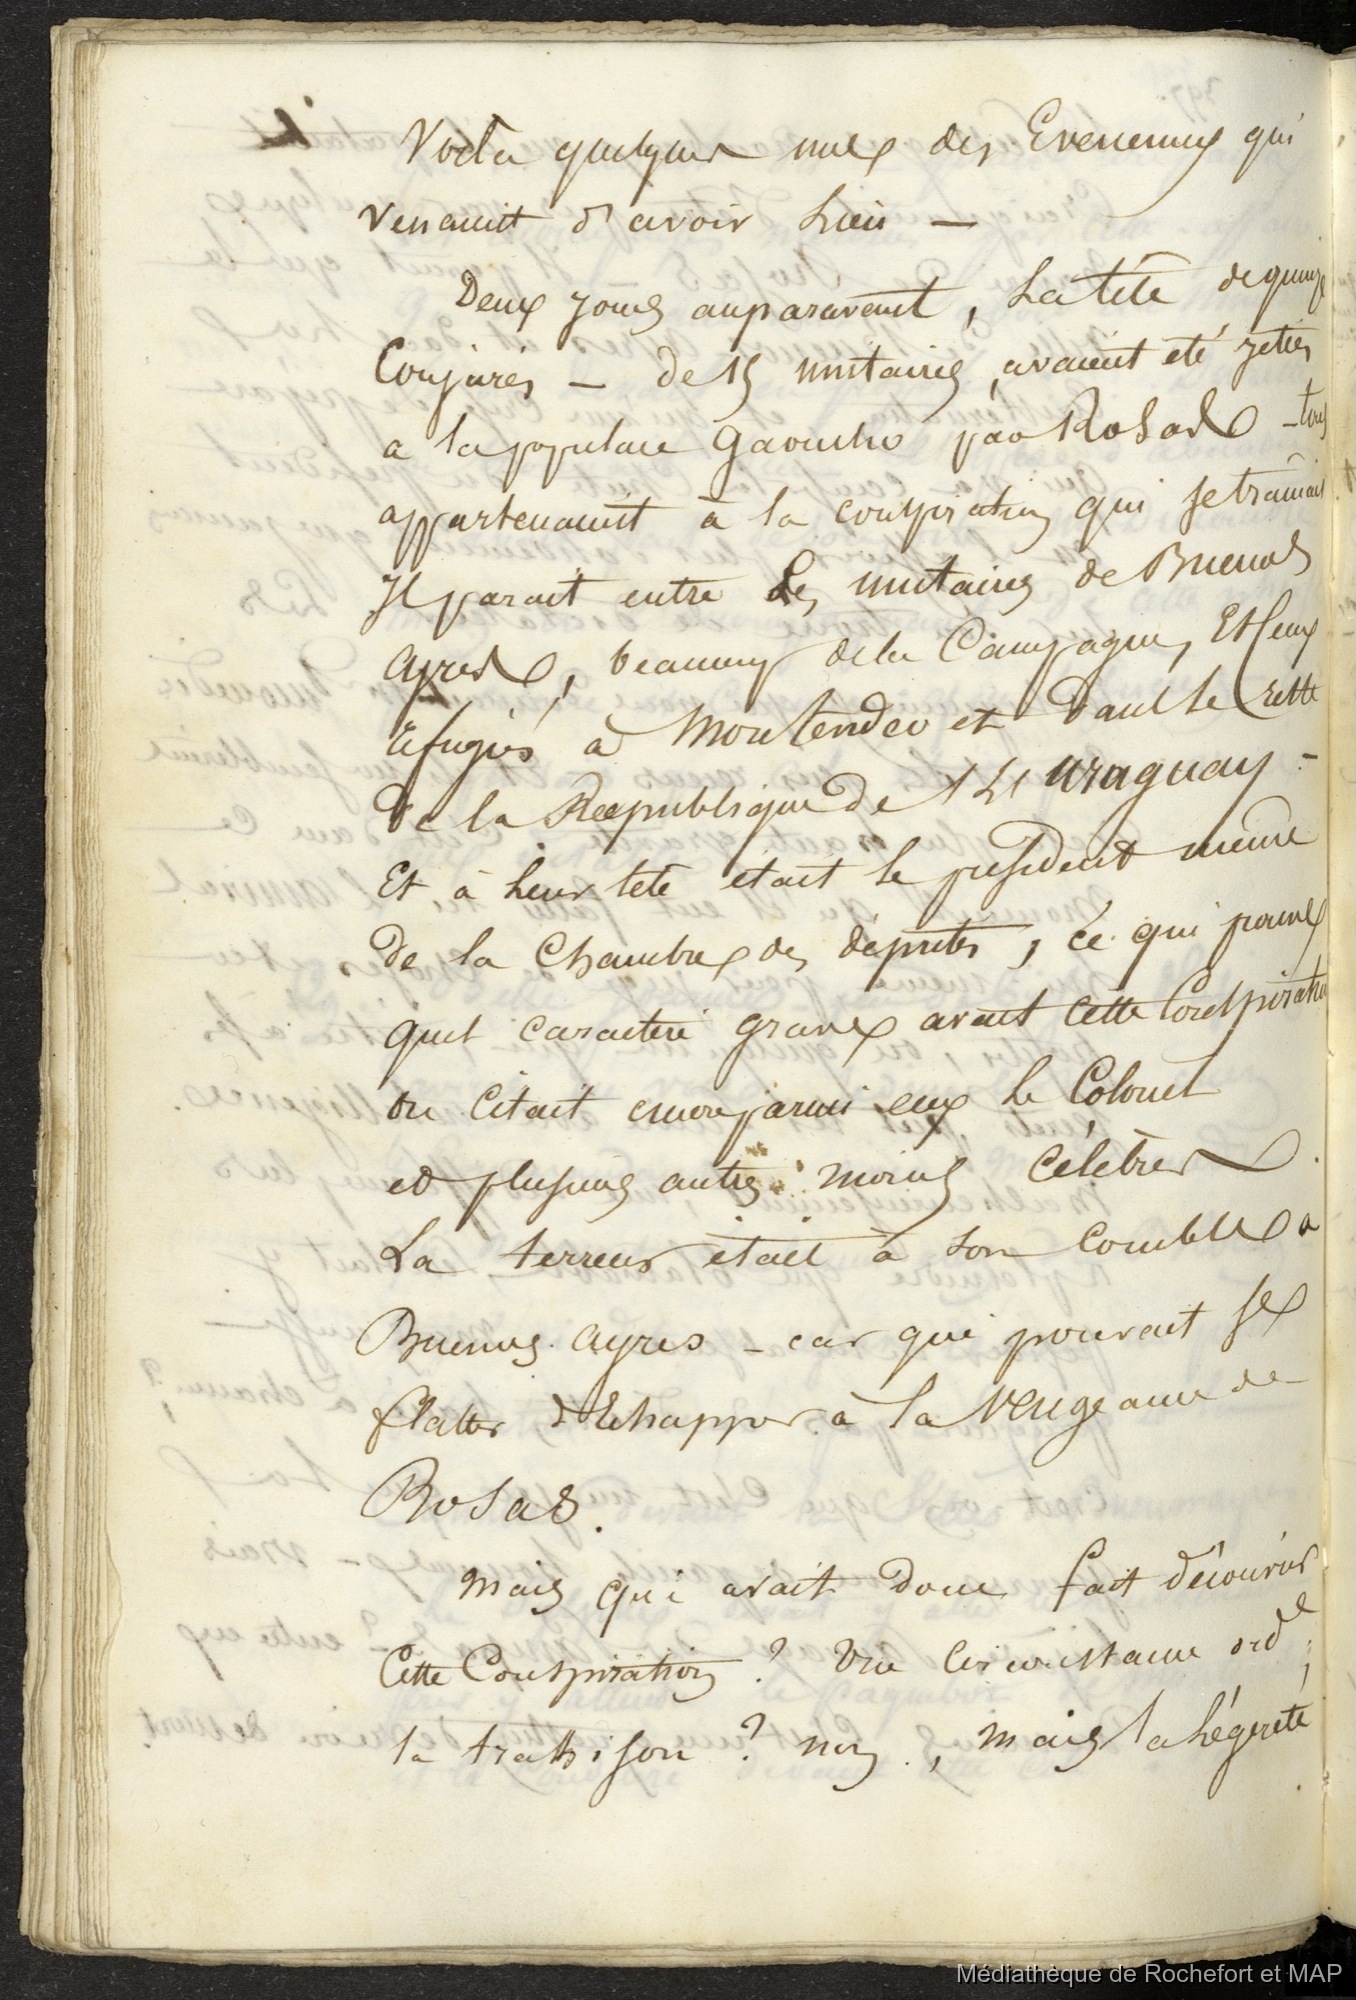 Voila quelques unes des Evenemens qui
venaient d'avoir Lieu —
Deux jours auparavant, La tête de quinze
Conjurés — de 15 unitaires, avaient été jetées
a la populace Gaoucho par Rosas — tous
appartenaient à la conspiration qui se tramait
Il parait entre Les unitaires de Buenos
ayres, beaucoup de la Campagne, Et Ceux
réfugiés à Montevideo et dans le reste
de la République de l'Uruguay —
Et à Leur tête était le président même
de la Chambre des députés, ce qui prouve
quel caractère grave avait cette Conspiration
ou C'était encore parmi eux le Colonel
et plusieurs autres moins Célèbres.
La terreur était à son comble a
Buenos ayres — car qui pouvait se
flatter d'Echapper à la vengeance de
Rosas.
Mais qui avait donc fait découvrir
Cette Conspiration ? Une Circonstance ord ;
la trahison ? non, mais la Légèreté
Médiathèque de Rochefort et MAP